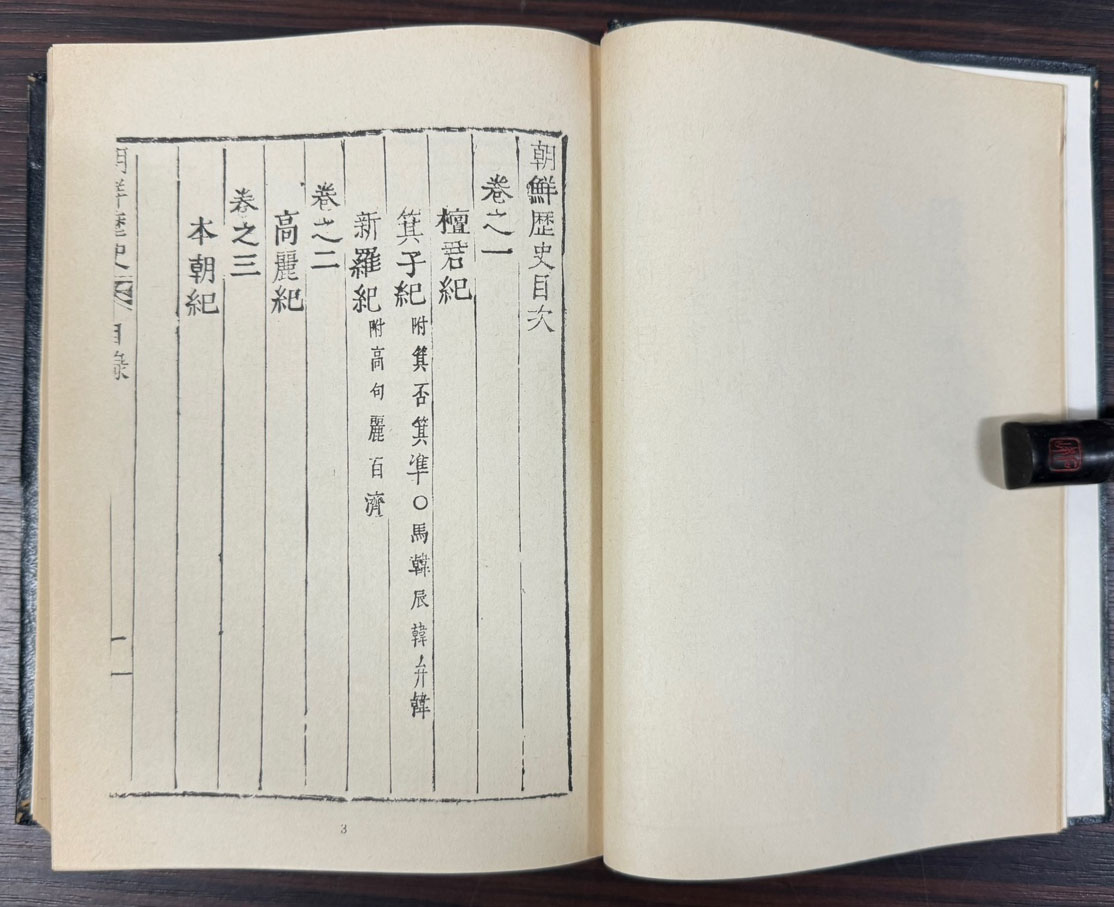 朝鮮歷史目次
卷之一
檀君紀
箕子紀 附箕否箕準○馬韓辰韓弁韓
新羅紀 附高句麗百濟
卷之二
高麗紀
卷之三
本朝紀
朝鮮歷史 目錄
一
3